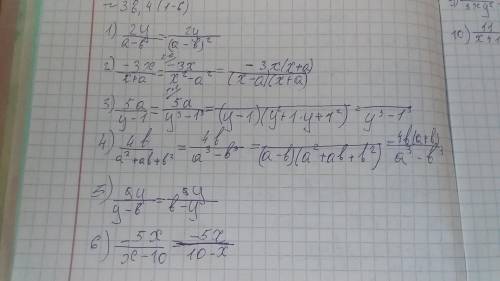 ~3b, 4(1-b)
1) 2y/(a-b) = 2y/(a-b)²
2) -3x/(x+a) = -3x/(x²-a²) = -3x(x+a)/((x-a)(x+a))
3) 5a/(y-1) = 5a/(y³-1³) = /((y-1)(y²+1·y+1²)) = /(y³-1³)
4) 4b/(a²+ab+b²) = 4b/(a³-b³) = /((a-b)(a²+ab+b²)) = 4b(a+b)/(a³-b³)
5) 5y/(y-b) = 5y/(b-y)
6) -5x/(x-10) = -5x/(10-x)
10) 11/